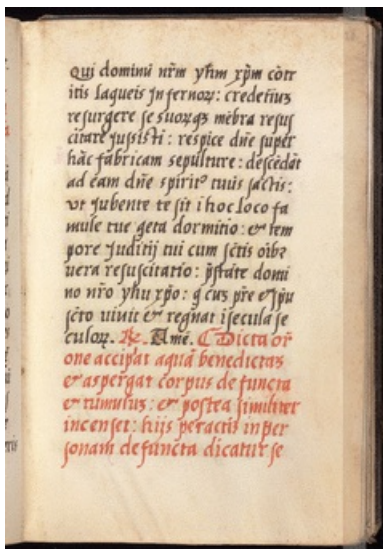 qui dominū nr̄m yhm̄ xp̄m cōtr
itis laqueis Infernoꝝ: credentiuꝫ
resurgere se suoꝝqꝫ mēbra resus
citare Iussisti: respice dn̄e super
hāc fabricam sepulture: descēdāt
ad eam dn̄e spiritꝰ tuus sāctꝰ:
vt Iubente te sit i hoc loco fa
mule tue q̄eta dormitio: et tem
pore Iuditij tui cum sc̄tis oībꝫ
vera resuscitatio: p̄state domi
no nr̄o yhu xp̄o: q̄ cus pr̄e et sp̄u
sc̄to viuit et regnat i secula se
culoꝝ. ℟. Amē. ⸿ Dicta or
one accipat aquā benedictaꝫ
et aspergat corpus de functa
et tumuluꝫ: et postea similiter
incenset: hijs peractis in per
sonam defuncta dicatur se